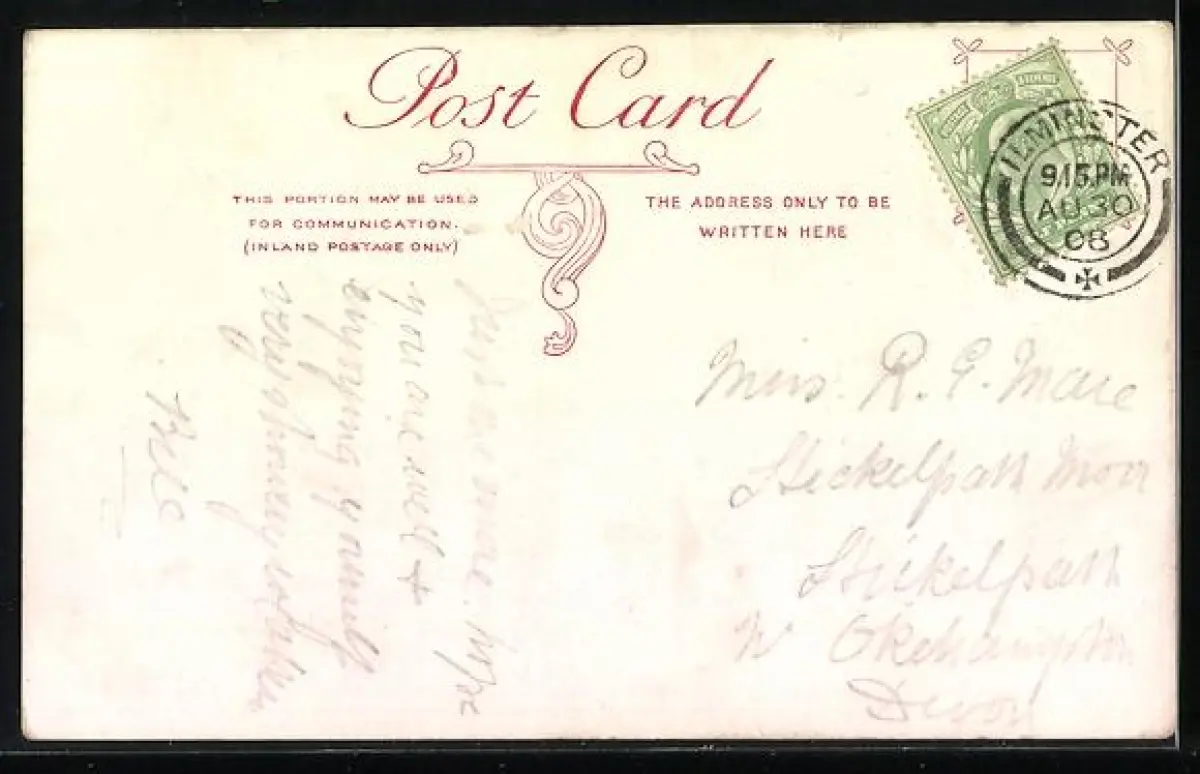 Post Card
THIS PORTION MAY BE USED
FOR COMMUNICATION.
(INLAND POSTAGE ONLY)
THE ADDRESS ONLY TO BE
WRITTEN HERE
ILMINSTER
9.15.PM
AU 30
08
one more. hope
you are well &
enjoying y
very
Miss. R. G. Mare
Stickelpath Moor
Stickelpath
Nr Okehampton
Devon